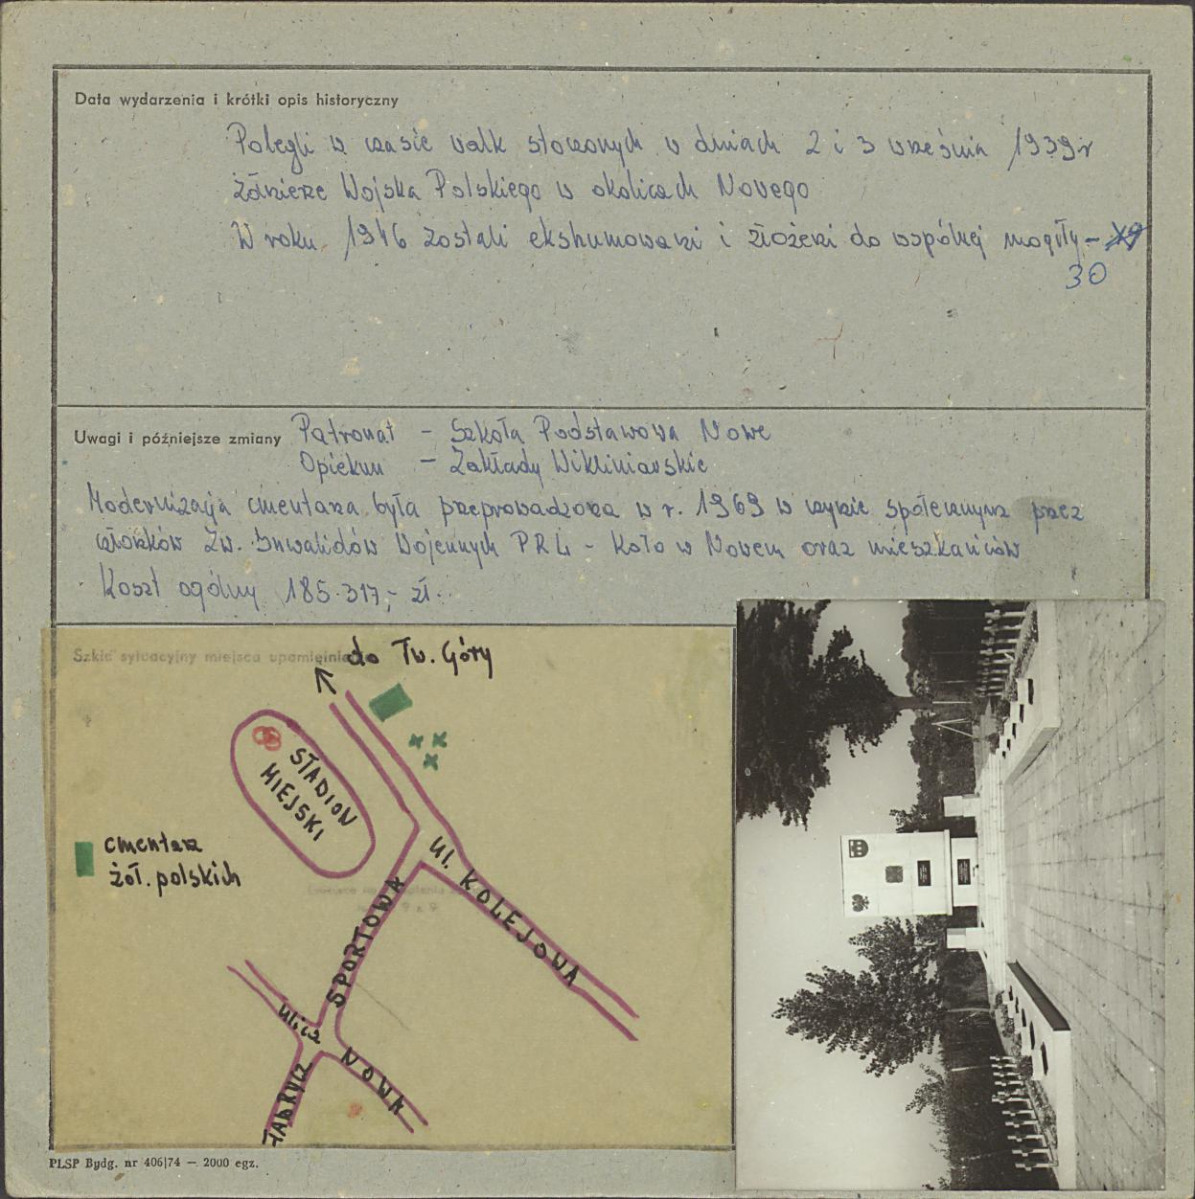 Data wydarzenia i krótki opis historyczny
Polegli w czasie walk stoczonych w dniach 2 i 3 września 1939 r
żołnierze Wojska Polskiego w okolicach Nowego
W roku 1946 zostali ekshumowani i złożeni do wspólnej mogiły –
30
Uwagi i późniejsze zmiany Patronat – Szkoła Podstawowa Nowe
Opiekun – Zakłady Wikliniarskie
Modernizacja cmentarza była przeprowadzona w r. 1969 w czynie społecznym przez
członków Zw. Inwalidów Wojennych PRL – Koło w Nowem oraz mieszkańców
Koszt ogólny 185.317,- zł.
Szkic sytuacyjny miejsca upamiętnia
do Tw. Góry
STADION
MIEJSKI
cmentarz
żoł. polskich
ul. KOLEJOWA
SPORTOWA
ulica NOWA
PLSP Bydg. nr 406/74 — 2000 egz.